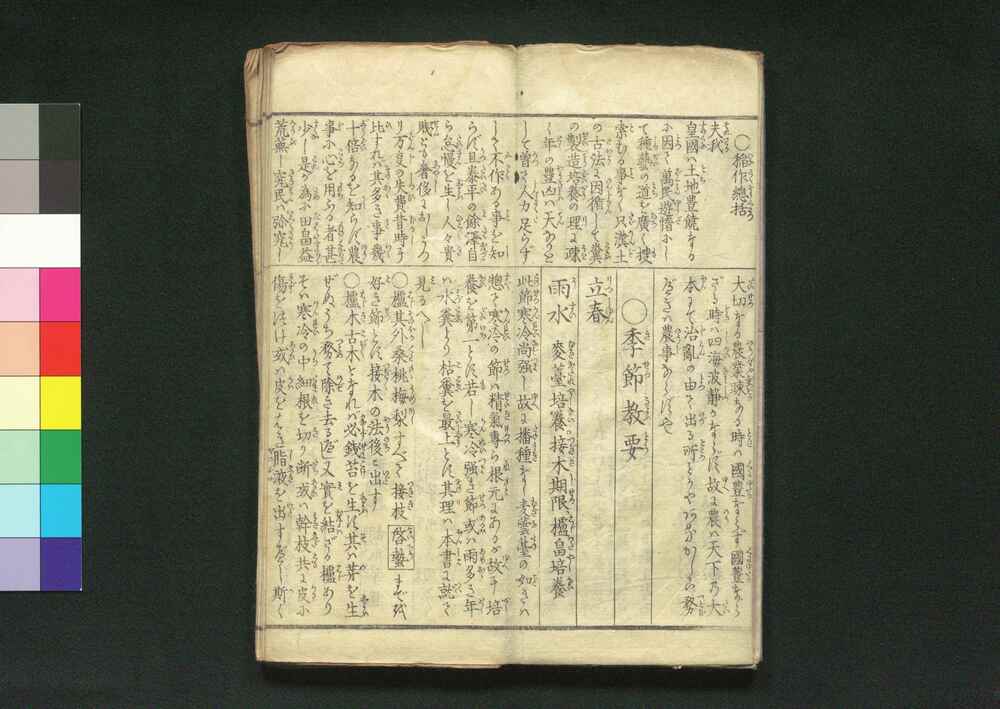 〇権作總括
夫我
皇國ハ土地豊饒なる
に因て萬民遊惰にし
て種藝の道を廣く捜
索むる事なく只漢土
の古法に因循して糞
の製造培養の理に疎
く年の豊凶ハ天なりと
して曽て人力足らず
して不作ある事を知
らず且泰平の餘澤自
ら怠慢を生し人々貴
賤ともに奢侈に
り万民の失費昔時に
比すれバ其多き事幾
十倍なるを知らず農
事に心を用る者甚
少し是か為に田畠益
荒蕪し窮民ハ弥窮し
大切なる農業疎なる時ハ國豊ならず國豊なら
ざる時ハ四海波静ならず故に農ハ天下の大
本にて治亂の由て出る所
ハ農事なるべきや
〇季節教要
立春
雨水 麥薹培養接木期限櫨畠培養
此節寒冷尚强し故に播種なし麦蕓薹の如きハ
惣て寒冷の節ハ精氣専ら根元にあるが故に培
養を第一とす若し寒冷强き節或ハ雨多き年
ハ水糞より枯糞を最上とす其理ハ本書に就て
見るべし
〇櫨其外桒桃梅梨すべて接枝 啓蟄 までを
好き節とす接木の法後に出す
〇櫨木古木となれバ必銭苔を生す其ハ芽を生
ぜぬうち務て除き去るべし又實を結ざる櫨あり
そハ寒冷の中細根を切り断或ハ幹枝共に皮に
傷をつけ或ハ皮をはぎ脂液を出すべし斯く